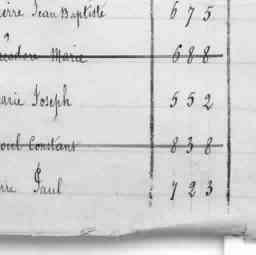 ierre Jean Baptiste 675
Marie 688
arie Joseph 552
Constant 838
rre Paul 723